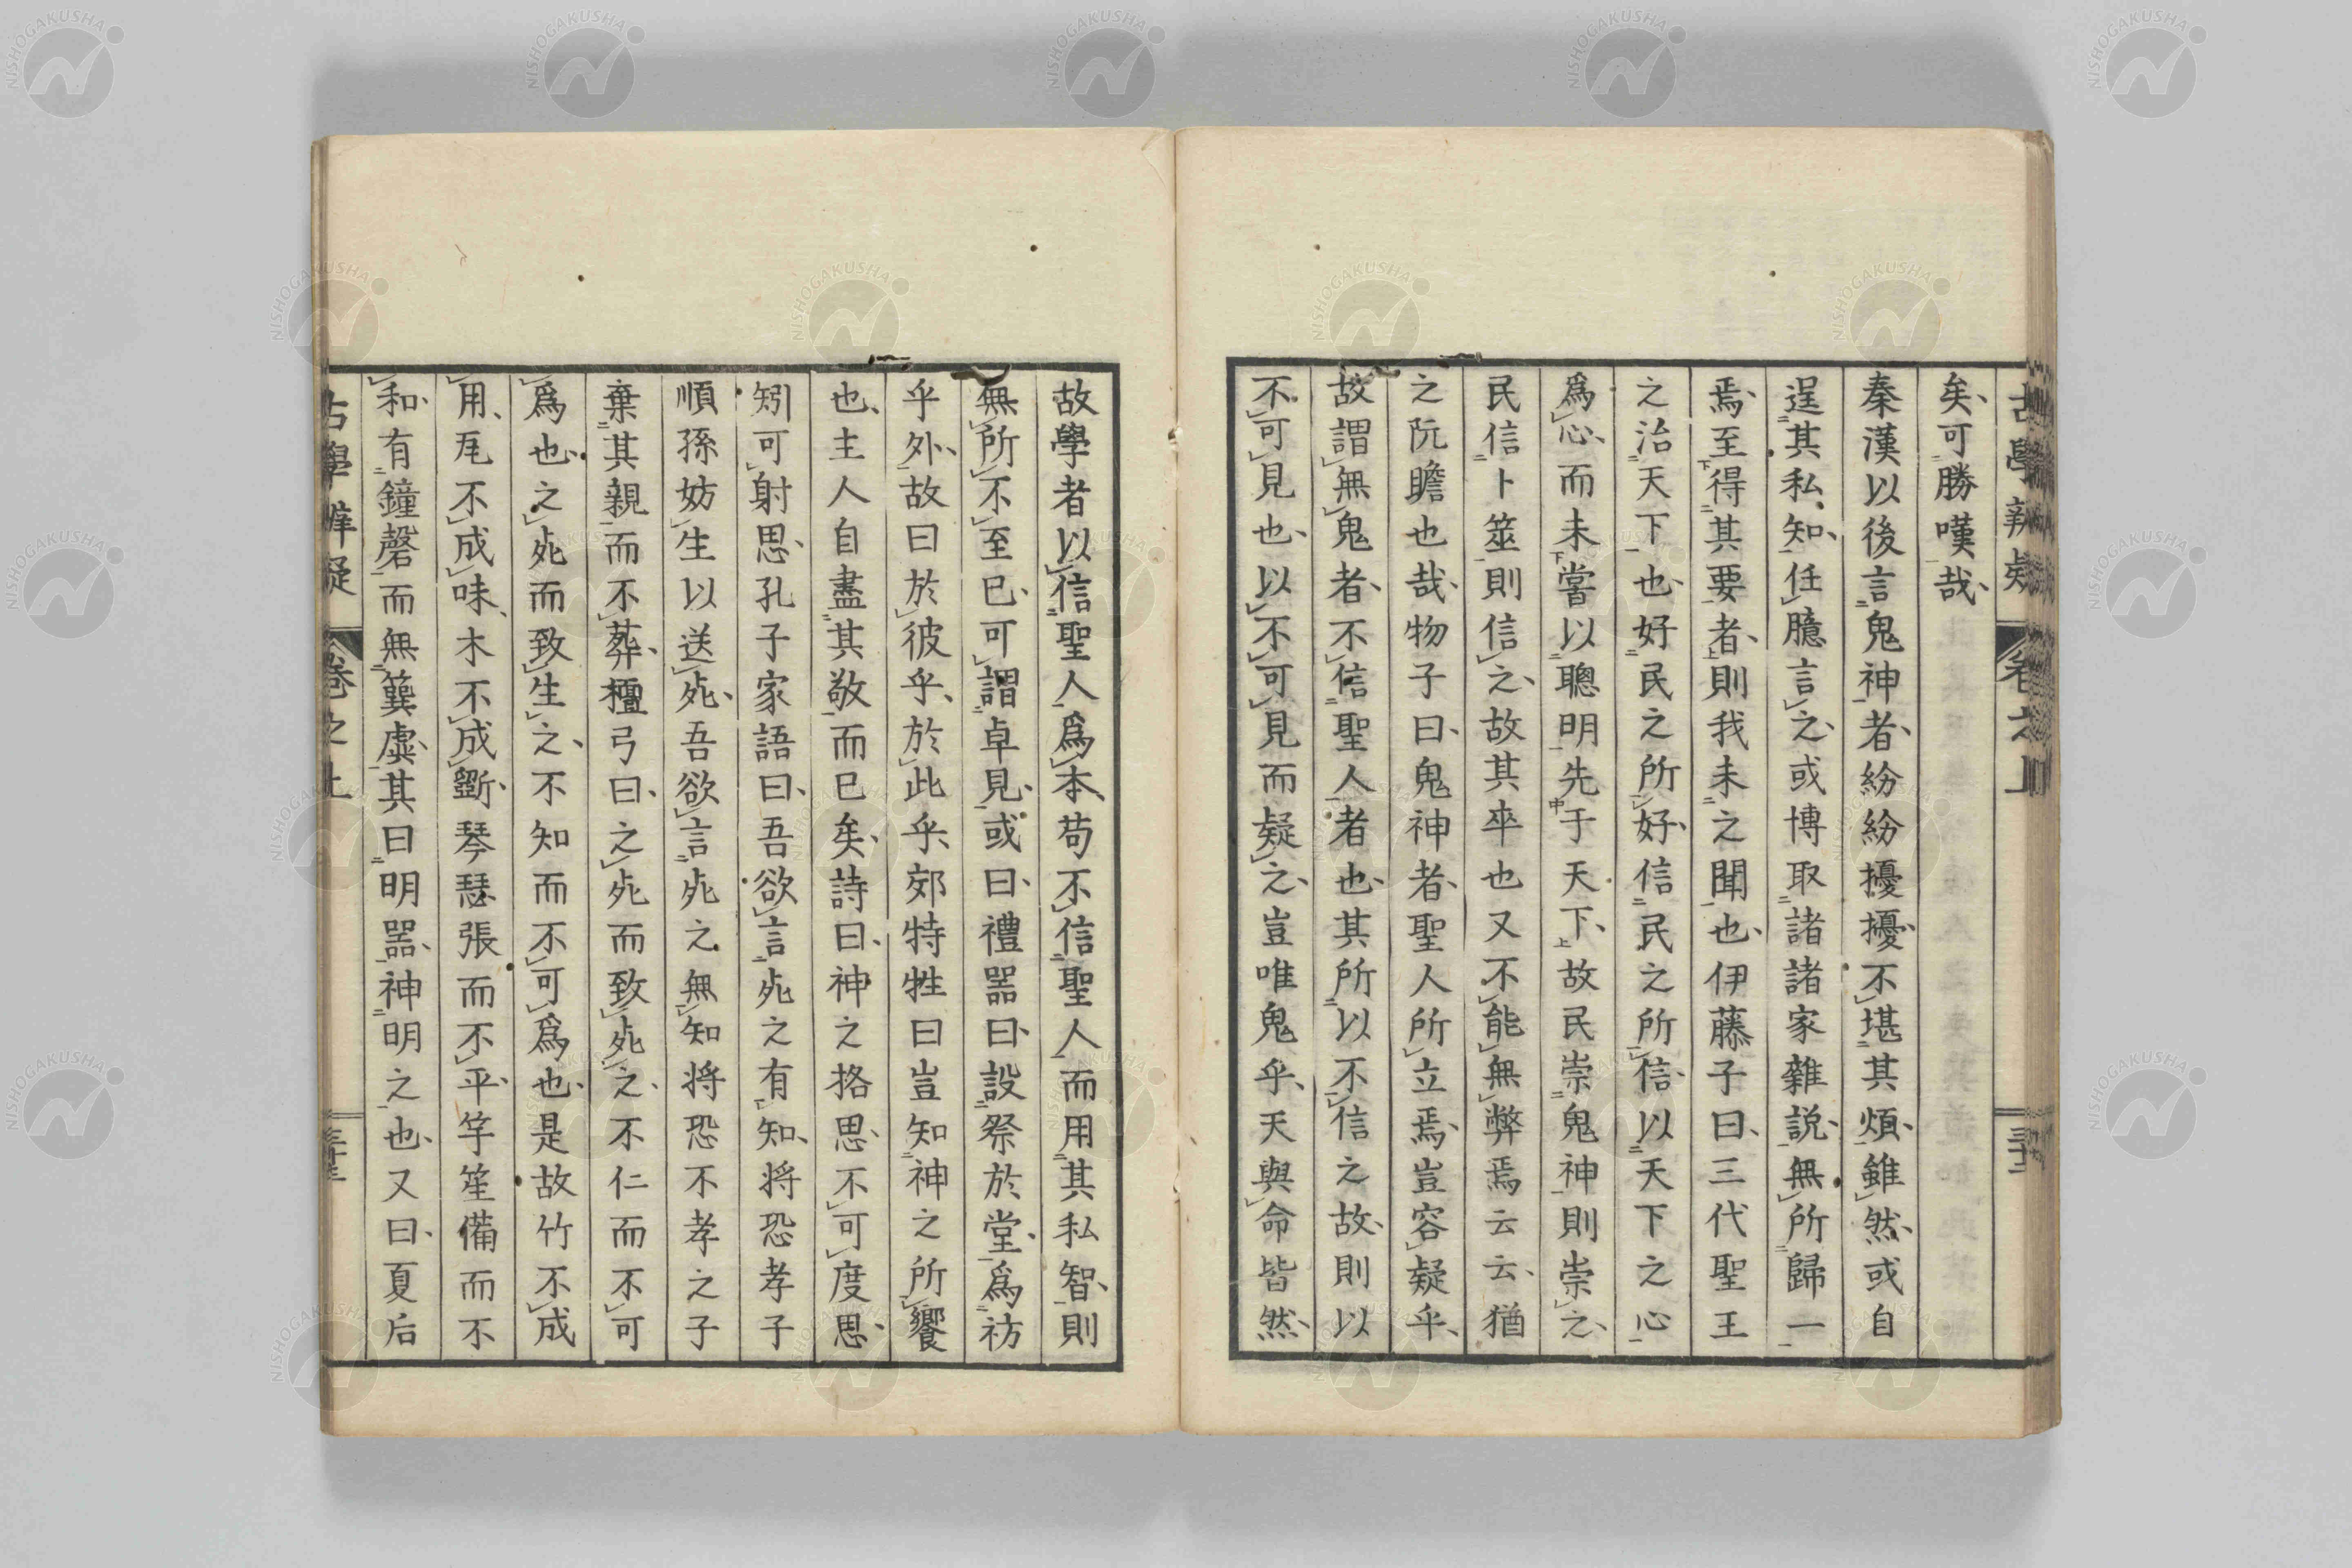 古學辨疑 卷之上 三十二
矣、可勝嘆哉、
秦漢以後言鬼神者、紛紛擾擾、不堪其煩、雖然、或自
逞其私、知任臆言之、或博取諸諸家雜説、無所歸一
焉、至得其要者、則我未之聞也、伊藤子曰、三代聖王
之治天下也、好民之所好、信民之所信、以天下之心
爲心、而未嘗以聰明先于天下、故民崇鬼神則崇之、
民信卜筮則信之、故其卒也又不能無弊焉云云、猶
之阮瞻也哉、物子曰、鬼神者、聖人所立焉、豈容疑乎、
故謂無鬼者、不信聖人者也、其所以不信之故、則以
不可見也、以不可見而疑之、豈唯鬼乎、天與命皆然、
故學者以信聖人爲本、苟不信聖人而用其私智、則
無所不至已、可謂卓見、或曰、禮器曰、設祭於堂、爲祊
乎外、故曰於彼乎、於此乎、郊特牲曰豈知神之所饗
也、主人自盡其敬而已矣、詩曰、神之格思、不可度思、
矧可射思、孔子家語曰、吾欲言死之有知、將恐孝子
順孫妨生以送死、吾欲言死之無知將恐不孝之子
棄其親而不葬、檀弓曰、之死而致死之、不仁而不可
爲也、之死而致生之、不知而不可爲也、是故竹不成
用、瓦不成味、木不成斲、琴瑟張而不平、竽笙備而不
和、有鐘磬而無簨虡、其曰明器、神明之也、又曰、夏后
古學辨疑 卷之上